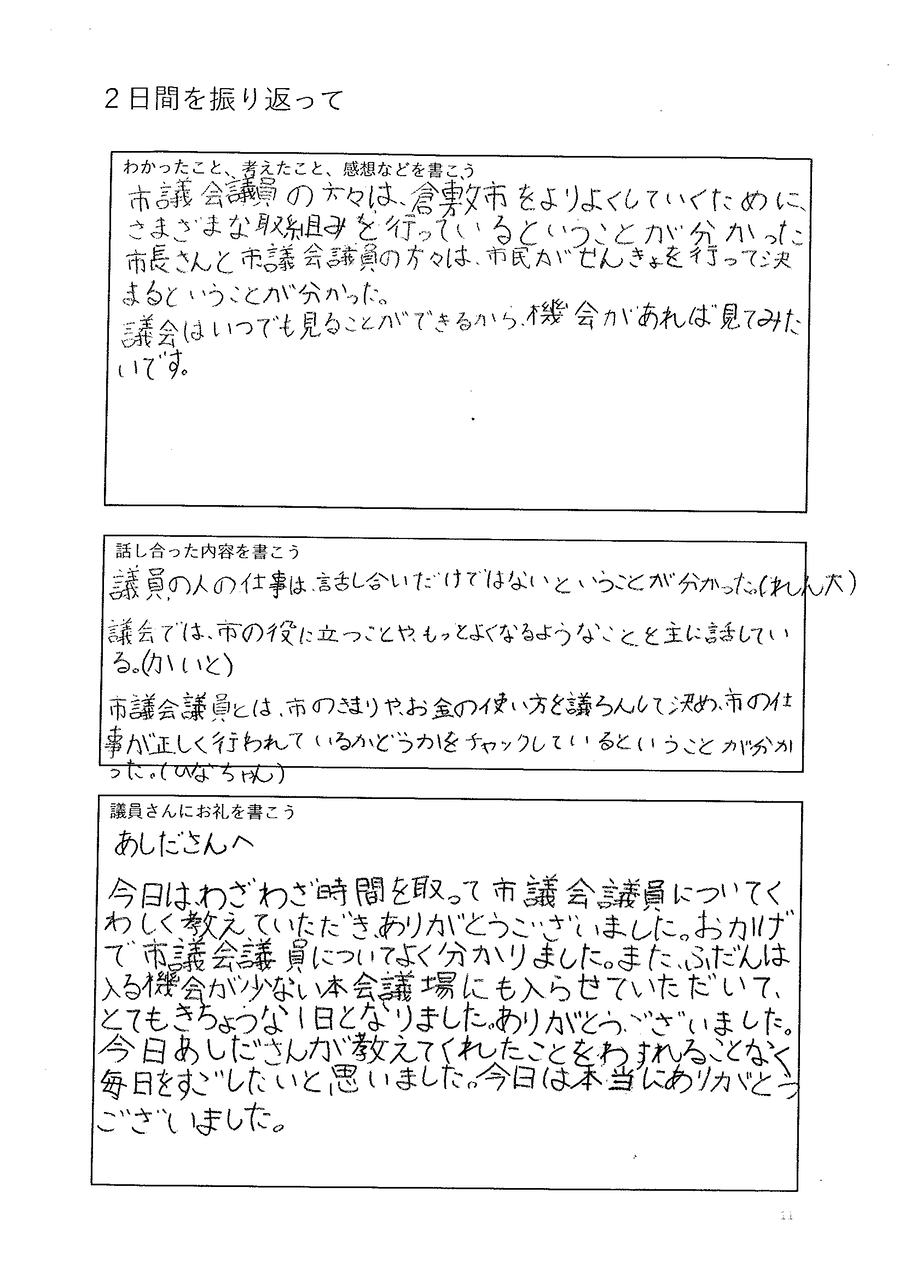 2日間を振り返って
わかったこと、考えたこと、感想などを書こう
市議会議員の方々は、倉敷市をよりよくしていくために、
さまざまな取組みを行っているということが分かった
市長さんと市議会議員の方々は、市民がせんきょを行って決
まるということが分かった。
議会はいつでも見ることができるから、機会があれば見てみた
いです。
話し合った内容を書こう
議員の人の仕事は、話し合いだけではないということが分かった。(れん大)
議会では、市の役に立つことや、もっとよくなるようなことを主に話してい
る。(かいと)
市議会議員とは、市のきまりや、お金の使い方を議ろんして決め、市の仕
事が正しく行われているかどうかをチャックしているということが分か
った。(ひなちゃん)
議員さんにお礼を書こう
あしださんへ
今日は、わざわざ時間を取って市議会議員についてく
わしく教えていただき、ありがとうございました。おかげ
で市議会議員についてよく分かりました。また、ふだんは
入る機会が少ない本会議場にも入らせていただいて、
とてもきちょうな1日となりました。ありがとうございました。
今日あしださんが教えてくれたことをわすれることなく
毎日をすごしたいと思いました。今日は本当にありがとう
ございました。
11